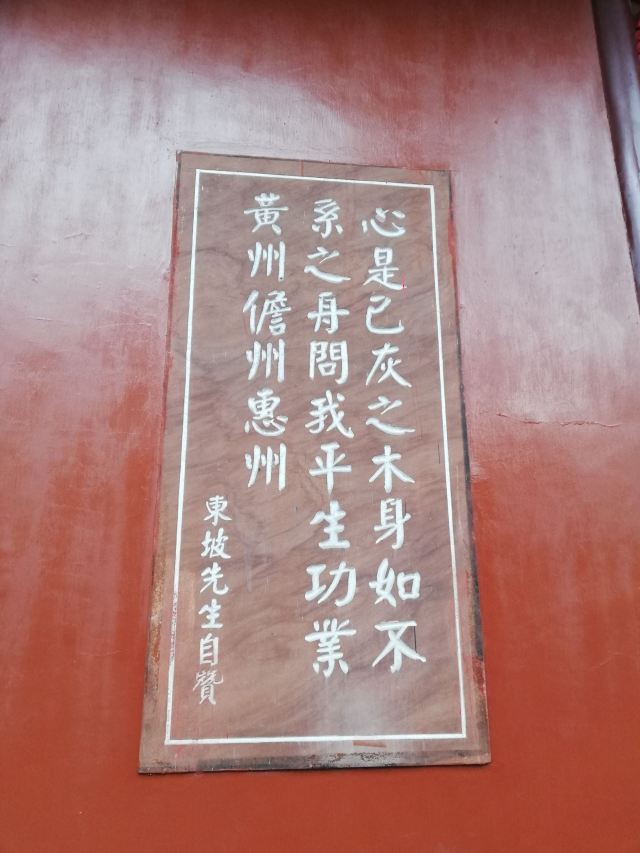 心是已灰之木身如不
系之舟問我平生功業
黃州儋州惠州
東坡先生自贊